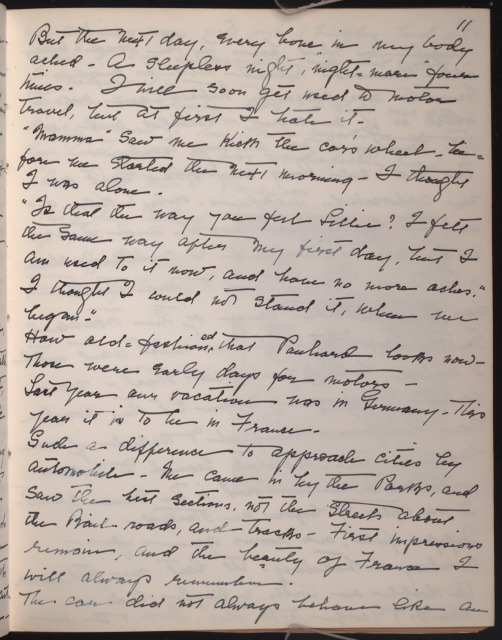 11
But the next day, every bone in my body
ached - A sleepless night, night-mare four
times. I will soon get used to motor
travel, but at first I hate it -
"Mamma" saw me kick the car's wheel - be=
fore we started the next morning - I thought
I was alone.
"Is that the way you felt Lillie? I felt
the same way after my first day, but I
am used to it now, and have no more aches."
I thought I could not stand it, when we
began."
How old-fashioned that Panhard looks now -
Those were early days for motors -
Last year our vacation was in Germany - This
year it is to be in France.
Such a difference to approach cities by
automobile - We came in by the Parks, and
saw the best sections, not the streets about
the Rail-roads, and tracks - First impressions
remain, and the beauty of France I
will always remember.
The car did not always behave like an